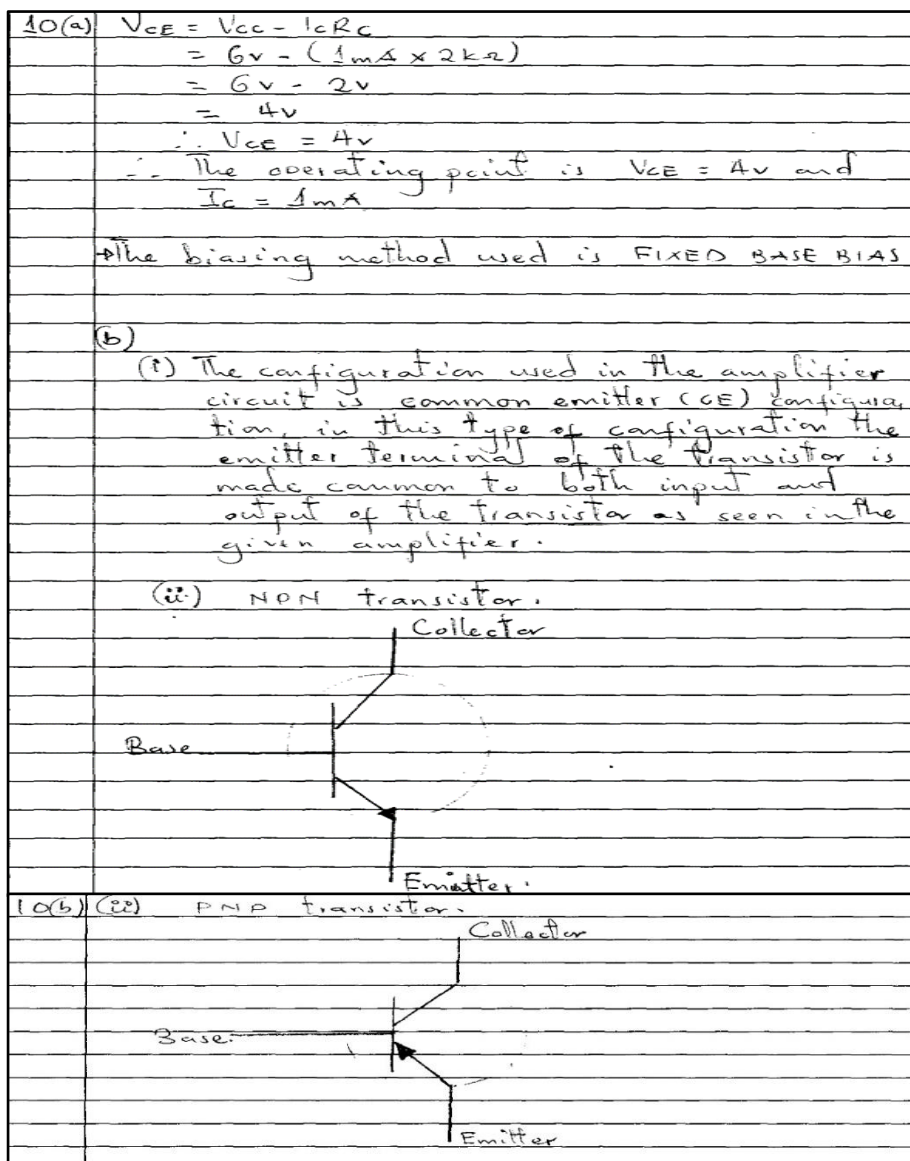 10(a) VCE = VCC - ICRC
= 6v - (1mA x 2kΩ)
= 6v - 2v
= 4v
∴ VCE = 4v
∴ The operating point is VCE = 4v and
IC = 1mA
→The biasing method used is FIXED BASE BIAS
(b)
(i) The configuration used in the amplifier
circuit is common emitter (CE) configura
tion, in this type of configuration the
emitter terminal of the transistor is
made common to both input and
output of the transistor as seen in the
given amplifier.
(ii) NPN transistor.
Collector
Base
Emitter.
10(b) (ii) PNP transistor.
Collector
Base.
Emitter